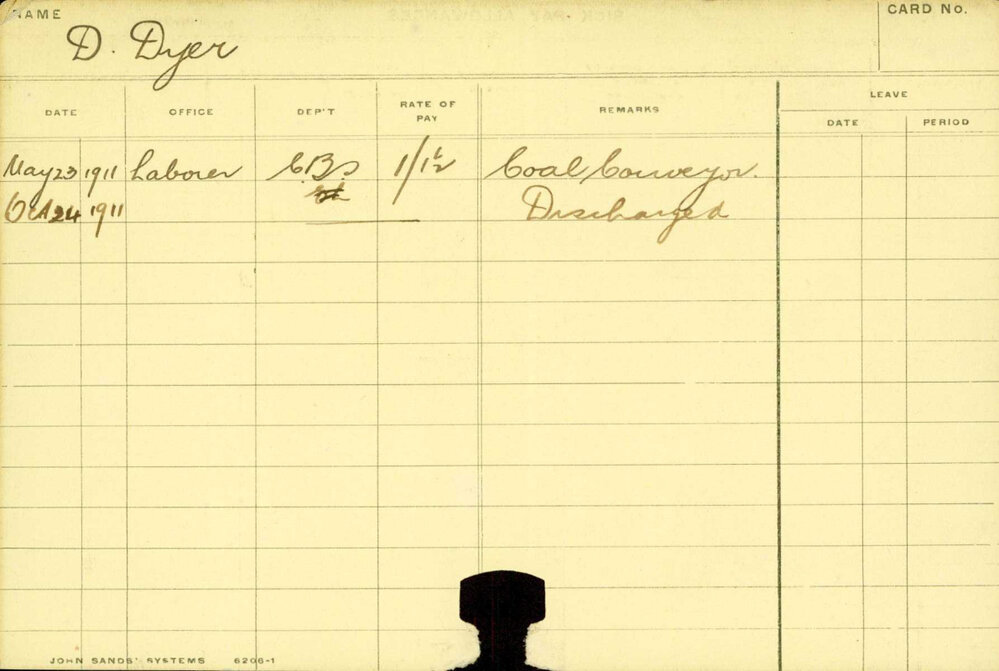 NAME
CARD No.
D. Dyer
LEAVE
DATE OFFICE DEP'T RATE OF PAY REMARKS
DATE PERIOD
May 23 1911 Laborer CBs 1/1½ Coal Conveyor.
Oct 24 1911 Discharged
JOHN SANDS' SYSTEMS 6206-1